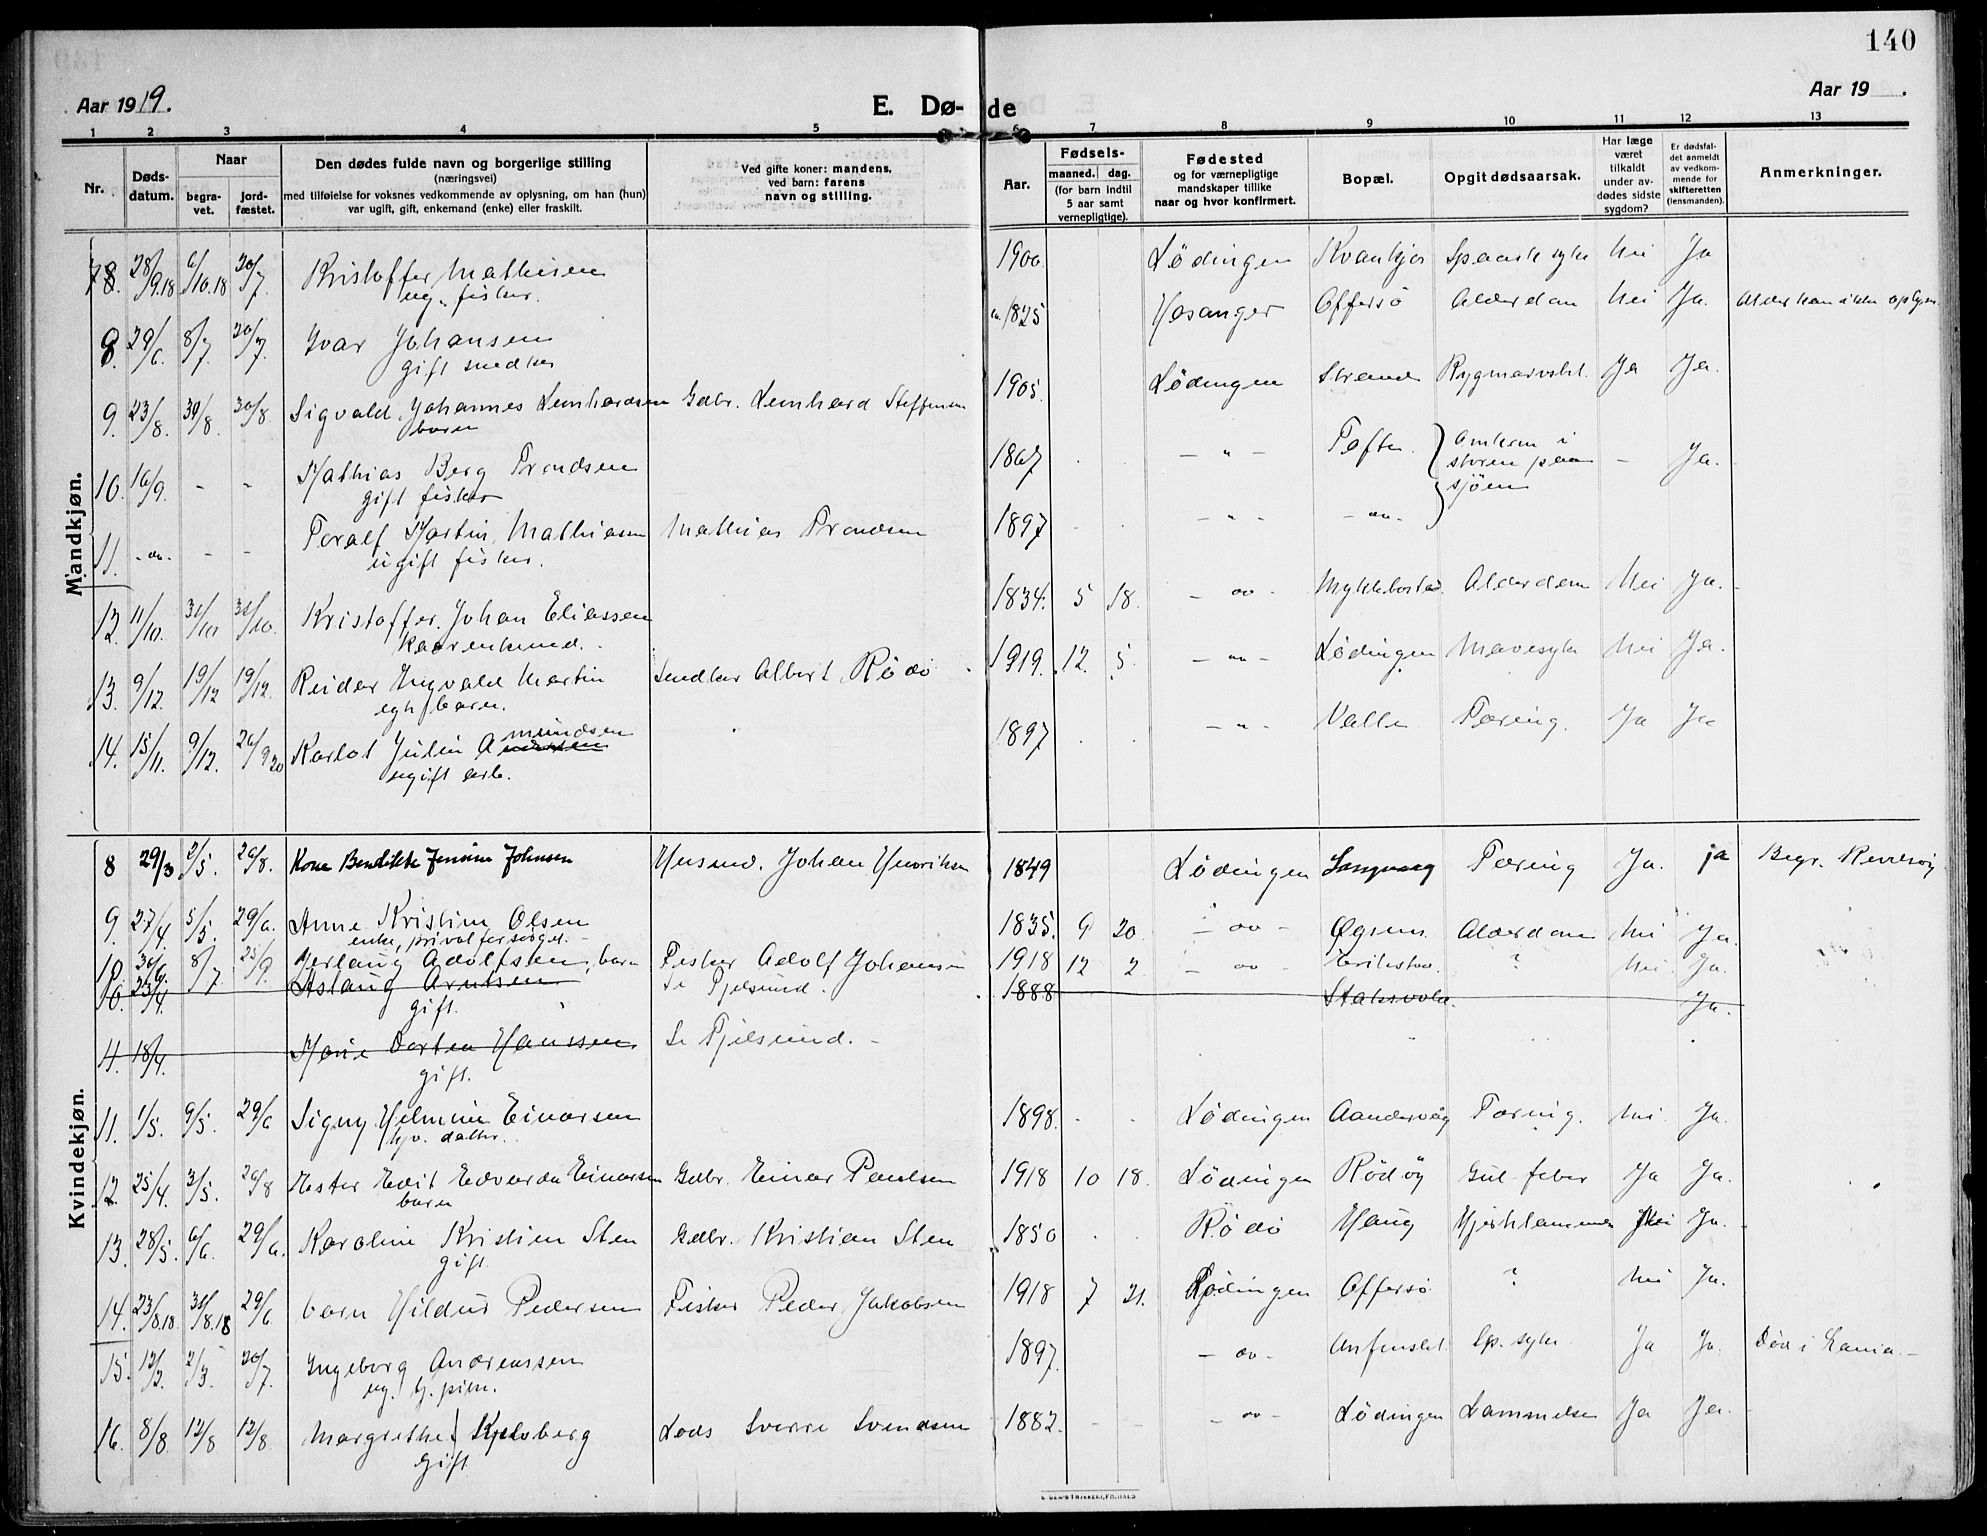 140
Aar 1919.
E. Dø- de
Aar 19 .
1 2 3 4 5 6 7 8 9 10 11 12 13
Nr.
Døds-
datum.
Naar
begra-
vet.
jord-
fæstet.
Den dødes fulde navn og borgerlige stilling
(næringsvei)
med tilføielse for voksnes vedkommende av oplysning, om han (hun)
var ugift, gift, enkemand (enke) eller fraskilt.
Ved gifte koner: mandens,
ved barn: farens
navn og stilling.
Aar.
Fødsels-
maaned. dag.
(for barn indtil
5 aar samt
vernepligtige).
Fødested
og for værnepligtige
mandskaper tillike
naar og hvor konfirmert.
Bopæl.
Opgit dødsaarsak.
Har læge
været
tilkaldt
under av-
dødes sidste
sygdom?
Er dødsfal-
det anmeldt
av vedkom-
mende for
skifteretten
(lensmanden).
Anmerkninger.
Mandkjøn.
8. 28/9.18 6/10.18 20/7. Kristoffer Mathisen 1900. Lødingen Spansk syke Nei Ja
ug. fisker.
8. 29/6. 8/7. 20/7. Ivar Johansen 1825 Hosanger Offersø Alderdom Nei Ja.
gift snedker
9. 23/8. 30/8. 30/8. Sigvald Johannes Lenhardsen Gdbr. Lenhard Steffensen 1905. Lødingen Strand Rygmarvsbet. Ja Ja.
barn
10. 16/9. - - Mathias Berg Trondsen 1867 - " - Tofte. Omkom i storm paa sjøen - Ja.
gift fisker
11. - " - - - Toralf Martin Mathiasen Mathias Trondsen 1897 - " - - " -
ugift fisker.
12. 11/10. 31/10 31/10. Kristoffer Johan Eliassen 1834. 5 18. - " - Myklebostad. Alderdom Nei Ja.
kaarenkmd.
13. 9/12. 19/12 19/12. Reidar Ingvald Martin Snedker Albert Rødø 1919. 12. 5. - " - Lødingen Mavesyke Nei Ja.
egte barn.
14. 15/11. 9/12. 26/9 20 Karlot Julin Amundsen 1897 - " - Valle Tæring. Ja Ja
ugift arb.
Kvindekjøn.
8 29/3 2/5. 26/8. Kone Bendikte Jensine Johnsen Husmd. Johan Henriksen 1849 Lødingen Tæring Ja. ja Begr.
9. 27/4. 5/5. 29/6. Anne Kristine Olsen 1835. 9 20. - " - Øgsun. Alderdom Nei Ja.
enke, privat forsørget.
10 30/6. 8/7. 25/9. Gerlaug Adolfsen, barn Fisker Adolf Johansen 1918 12 2 - " - Erikstad. ? Nei. Ja.
10. 23/4. Aslaug Arntsen Se Tjelsund. 1888 Staksvold. Ja.
gift.
11. 18/4. Marie Dortea Hanssen Se Tjelsund.
gift.
11. 1/5. 9/5. 29/6 Signy Helmine Einarsen 1898. Lødingen Aandervåg Tæring. Nei. Ja.
hjv. datter.
12. 25/4. 3/5. 26/8 Ester Edit Edvarda Einarsen Gdbr. Einar Paulsen 1918 10 18. Lødingen Rødøy Gul feber Ja Ja.
barn
13. 28/5. 6/6. 29/6. Karoline Kristine Sten Gdbr. Kristian Sten 1850 Rødø Haug Hjertelammelse Nei Ja.
gift.
14. 23/8.18. 31/8.18 29/6 barn Hildur Pedersen Fisker Peder Jakobsen 1918 7 21. Lødingen Offersø ? Nei Ja.
15. 12/3. 2/3. 20/7. Ingeborg Andreassen 1897. - " - Sp. syke. Ja Ja. Død i
ug. tj. pike.
16. 8/8. 12/8 12/8. Margrethe Kjelsberg Lods Sverre Svendsen 1882. - " - Lødingen Lammelse Ja Ja.
gift